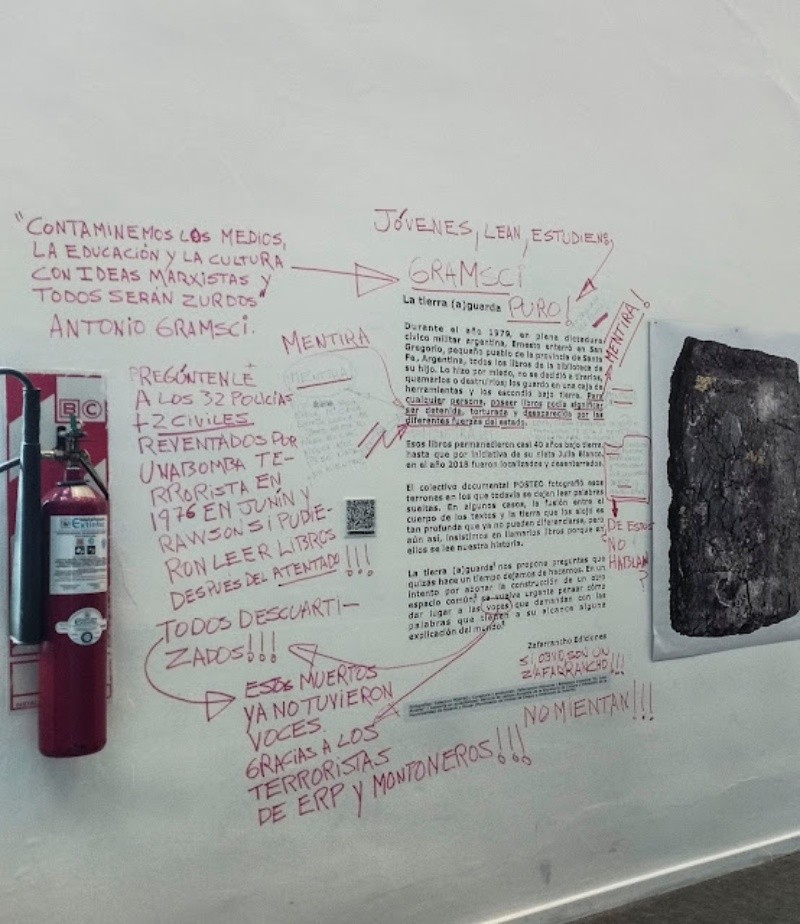 "CONTAMINEMOS LOS MEDIOS,
LA EDUCACIÓN Y LA CULTURA
CON IDEAS MARXISTAS Y
TODOS SERÁN ZURDOS"
ANTONIO GRAMSCI.
JÓVENES, LEAN, ESTUDIEN,
GRAMSCI
PURO!
MENTIRA
MENTIRA!
PREGÚNTENLE
A LOS 32 POLICÍAS
+2 CIVILES
REVENTADOS POR
UNA BOMBA TE-
RRORISTA EN
1976 EN JUNÍN Y
RAWSON SI PUDIE-
RON LEER LIBROS
DESPUÉS DEL ATENTADO!!!
TODOS DESCUARTI-
ZADOS!!!
ESTOS MUERTOS
YA NO TUVIERON
VOCES.
GRACIAS A LOS
TERRORISTAS
DE ERP Y MONTONEROS!!!
La tierra (a)guarda
Durante el año 1979, en plena dictadura
cívico militar argentina, Ernesto enterró en San
Gregorio, pequeño pueblo de la provincia de Santa
Fe, Argentina, todos los libros de la biblioteca de
su hijo. Lo hizo por miedo, no se decidió a tirarlos,
quemarlos o destruirlos; los guardó en una caja de
herramientas y los escondió bajo tierra. Para
cualquier persona, poseer libros podía significar
ser detenida, torturada y desaparecida por las
diferentes fuerzas del estado.
Esos libros permanecieron casi 40 años bajo tierra,
hasta que por iniciativa de su nieta Julia Blanco,
en el año 2018 fueron localizados y desenterrados.
El colectivo documental POSTEO fotografió estos
terrones en los que todavía se dejan leer palabras
sueltas. En algunos casos, la fusión entre el
cuerpo de los textos y la tierra que los alojó es
tan profunda que ya no pueden diferenciarse, pero
aún así, insistimos en llamarlos libros porque en
ellos se lee nuestra historia.
La tierra (a)guarda nos propone preguntas que
quizás hace un tiempo dejamos de hacernos. En un
intento por aportar la construcción de un otro
espacio común, se vuelve urgente pensar cómo
dar lugar a las voces que demandan con las
palabras que tienen a su alcance alguna
explicación del mundo.
Zafarrancho Ediciones
SI OBVIO, SON UN
ZAFARRANCHO!!!
NO MIENTAN!!!
DE ESTOS
NO
HABLAN?
BC